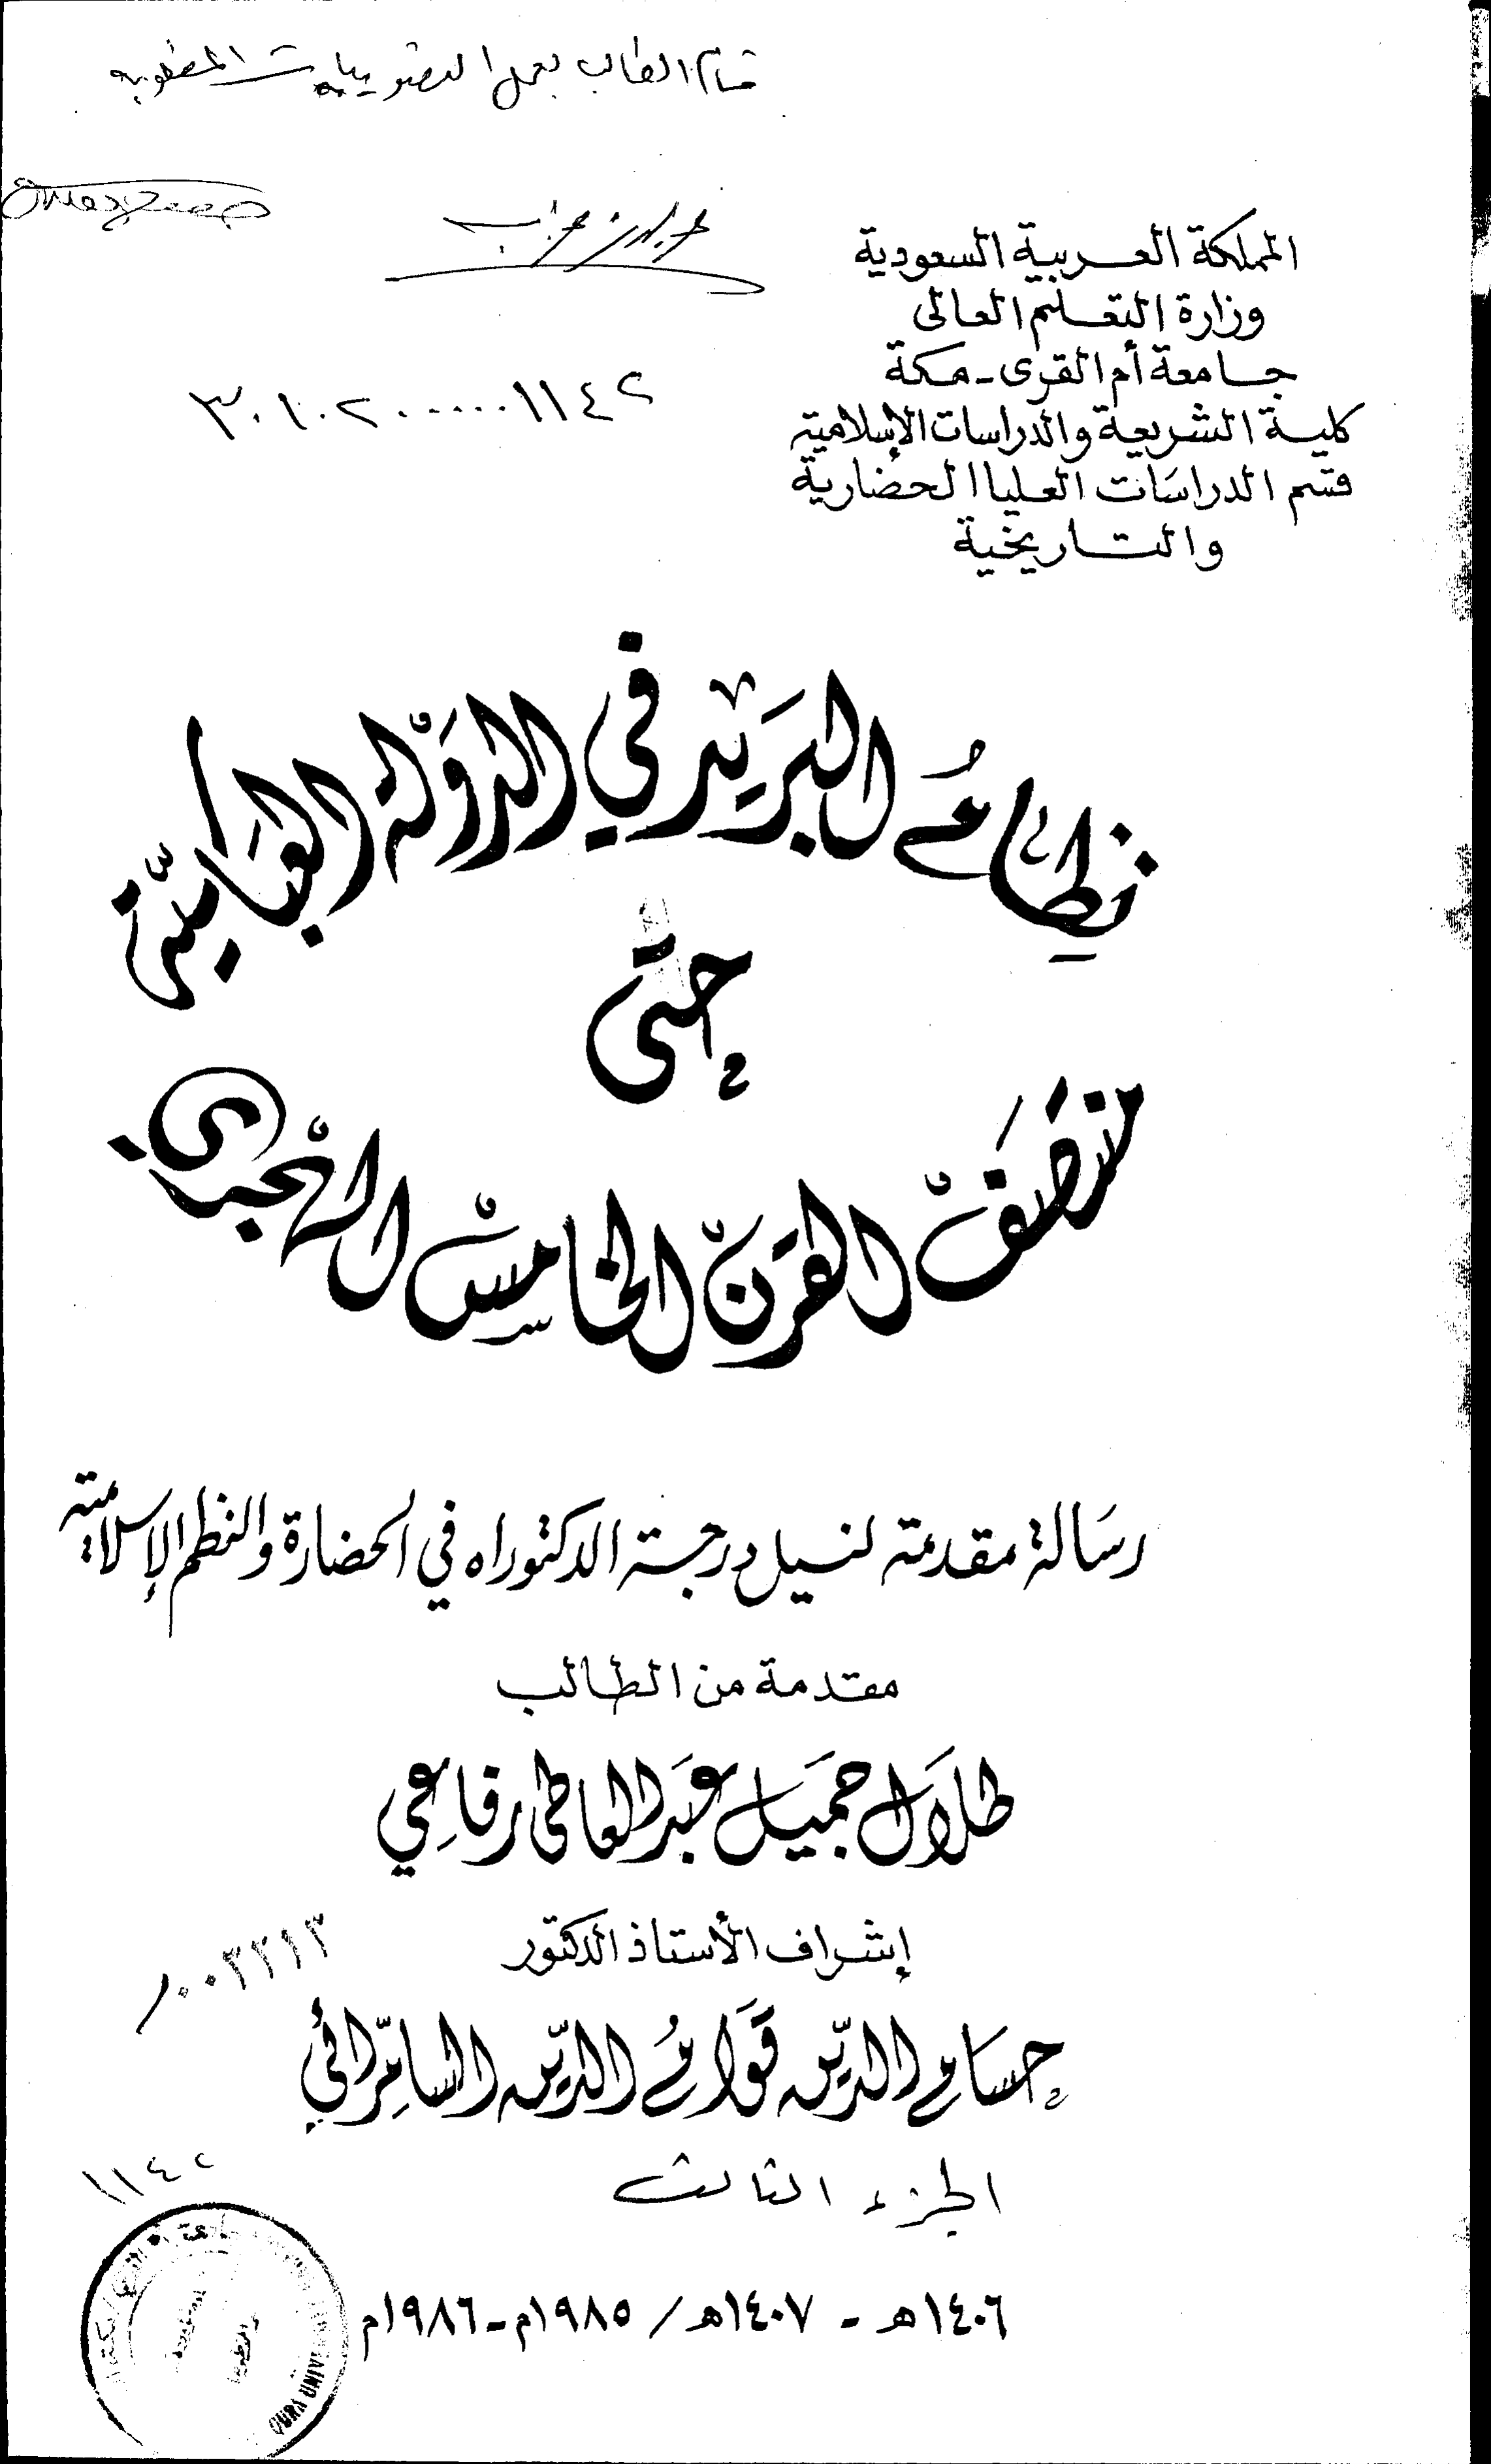 قام الطالب بعمل التصويبات المطلوبة
المملكة العربية السعودية
وزارة التعليم العالى
جامعة أم القرى - مكة
كلية الشريعة والدراسات الإسلامية
قسم الدراسات العليا الحضارية
والتاريخية
٣٠١٠٢٠٠٠٠٠١١٤٢
نظام البريد في الدولة العباسية
حتى
منتصف القرن الخامس الهجري
رسالة مقدمة لنيل درجة الدكتوراه في الحضارة والنظم الإسلامية
مقدمة من الطالب
طلال جميل عبد العاطي رفاعي
إشراف الأستاذ الدكتور
حسام الدين قوام الدين السامرائي
الجزء الثالث
١١٤٢
١٤٠٦هـ - ١٤٠٧هـ / ١٩٨٥م - ١٩٨٦م
QURA UNIV